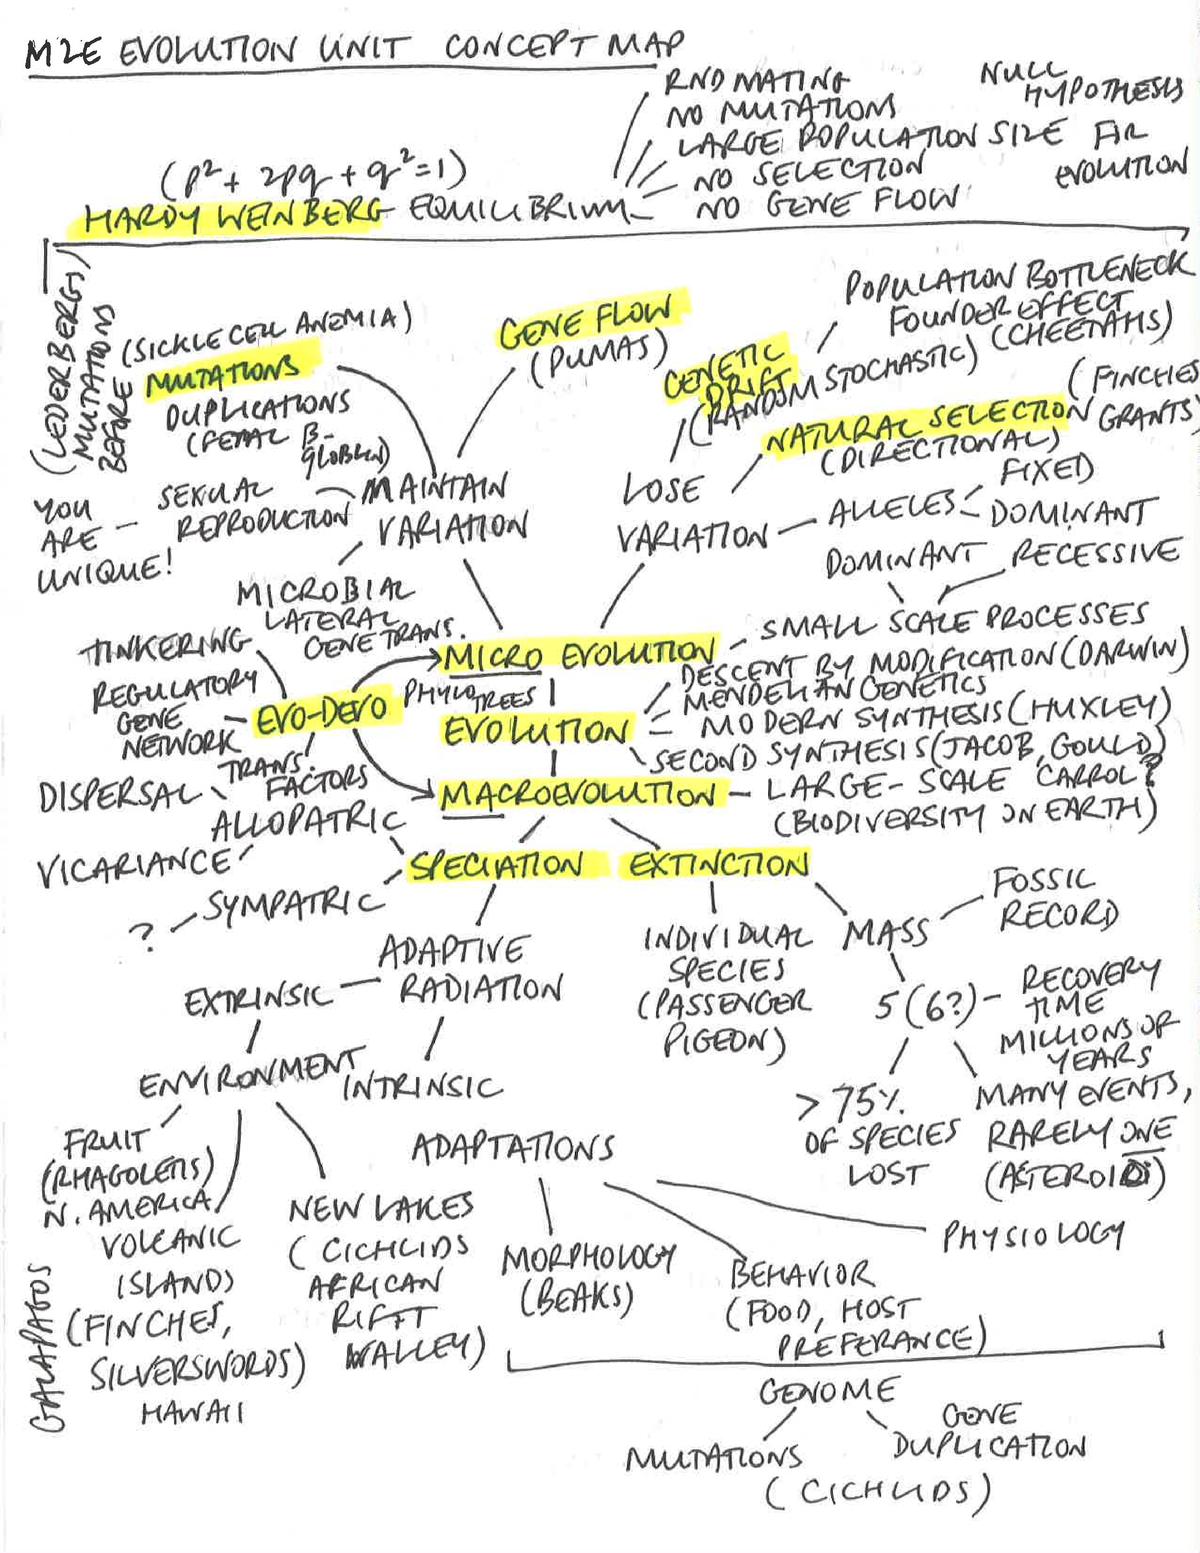 M2E EVOLUTION UNIT CONCEPT MAP
RND MATING
NO MUTATIONS
LARGE POPULATION SIZE
NO SELECTION
NO GENE FLOW
NULL
HYPOTHESIS
FOR
EVOLUTION
(p² + 2pq + q² = 1)
HARDY WEINBERG EQUILIBRIUM
(LEDERBERGS)
MUTATIONS
BEFORE
(SICKLE CELL ANEMIA)
MUTATIONS
DUPLICATIONS
(FETAL B-
GLOBLIN)
GENE FLOW
(PUMAS)
POPULATION BOTTLENECK
FOUNDER EFFECT
(CHEETAHS)
GENETIC
DRIFT
(RANDOM STOCHASTIC)
NATURAL SELECTION
(DIRECTIONAL)
(FINCHES
GRANTS)
YOU
ARE
UNIQUE!
SEXUAL
REPRODUCTION
MAINTAIN
VARIATION
LOSE
VARIATION
ALLELES
FIXED
DOMINANT
DOMINANT RECESSIVE
MICROBIAL
LATERAL
GENE TRANS.
TINKERING
REGULATORY
GENE
NETWORK
EVO-DEVO
TRANS.
FACTORS
MICRO EVOLUTION
SMALL SCALE PROCESSES
PHYLO
TREES
EVOLUTION
DESCENT BY MODIFICATION (DARWIN)
MENDELIAN GENETICS
MODERN SYNTHESIS (HUXLEY)
SECOND SYNTHESIS (JACOB, GOULD)
CARROL?
MACROEVOLUTION
LARGE-SCALE
(BIODIVERSITY ON EARTH)
DISPERSAL
ALLOPATRIC
VICARIANCE
SYMPATRIC
?
SPECIATION
EXTINCTION
ADAPTIVE
RADIATION
EXTRINSIC
INTRINSIC
INDIVIDUAL
SPECIES
(PASSENGER
PIGEON)
MASS
FOSSIL
RECORD
5 (6?)
RECOVERY
TIME
MILLIONS OF
YEARS
> 75%
OF SPECIES
LOST
MANY EVENTS,
RARELY ONE
(ASTEROID)
ENVIRONMENT
FRUIT
(RHAGOLETIS)
N. AMERICA
VOLCANIC
ISLANDS
(FINCHES,
SILVERSWORDS)
HAWAII
GALAPAGOS
NEW LAKES
(CICHLIDS
AFRICAN
RIFT
VALLEY)
ADAPTATIONS
MORPHOLOGY
(BEAKS)
BEHAVIOR
(FOOD, HOST
PREFERANCE)
PHYSIOLOGY
GENOME
MUTATIONS
GENE
DUPLICATION
(CICHLIDS)